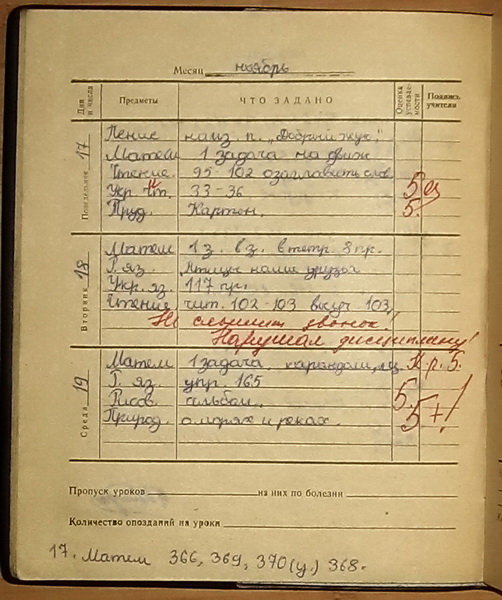 Месяц ноябрь
Дни и числа Предметы ЧТО ЗАДАНО Оценка успеваемости Подпись учителя
Понедельник 17
Пение наиз. п. „Добрый жук."
Матем 1 задача на движ
Чтение. 95-102 озаглавить слов.
Укр. чт. 33-36 5
Труд. Картон. 5
Вторник 18
Матем 1 з. в з. в тетр. 8 пр.
Р. яз. Птицы наши друзья
Укр. яз. 117 пр.
Чтение чит. 102-103 103
Не слышит звонок!
Нарушал дисциплину!
Среда 19
Матем 1 задача, карандаши, К. р. 5.
Р. яз. упр. 165 5
Рисов. альбом.
Природ. о морях и реках. 5+!
Пропуск уроков из них по болезни
Количество опозданий на уроки
17. Матем 366, 369, 370 (у.) 368.